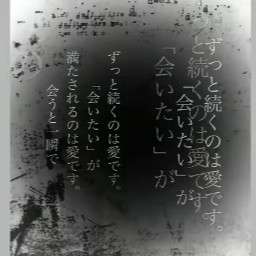 ずっと続くのは愛です。
っと続くのは愛です
「会いたい」が
「会いたい」が
ずっと続くのは愛です。
「会いたい」が
満たされるのは愛です。
会うと一瞬で